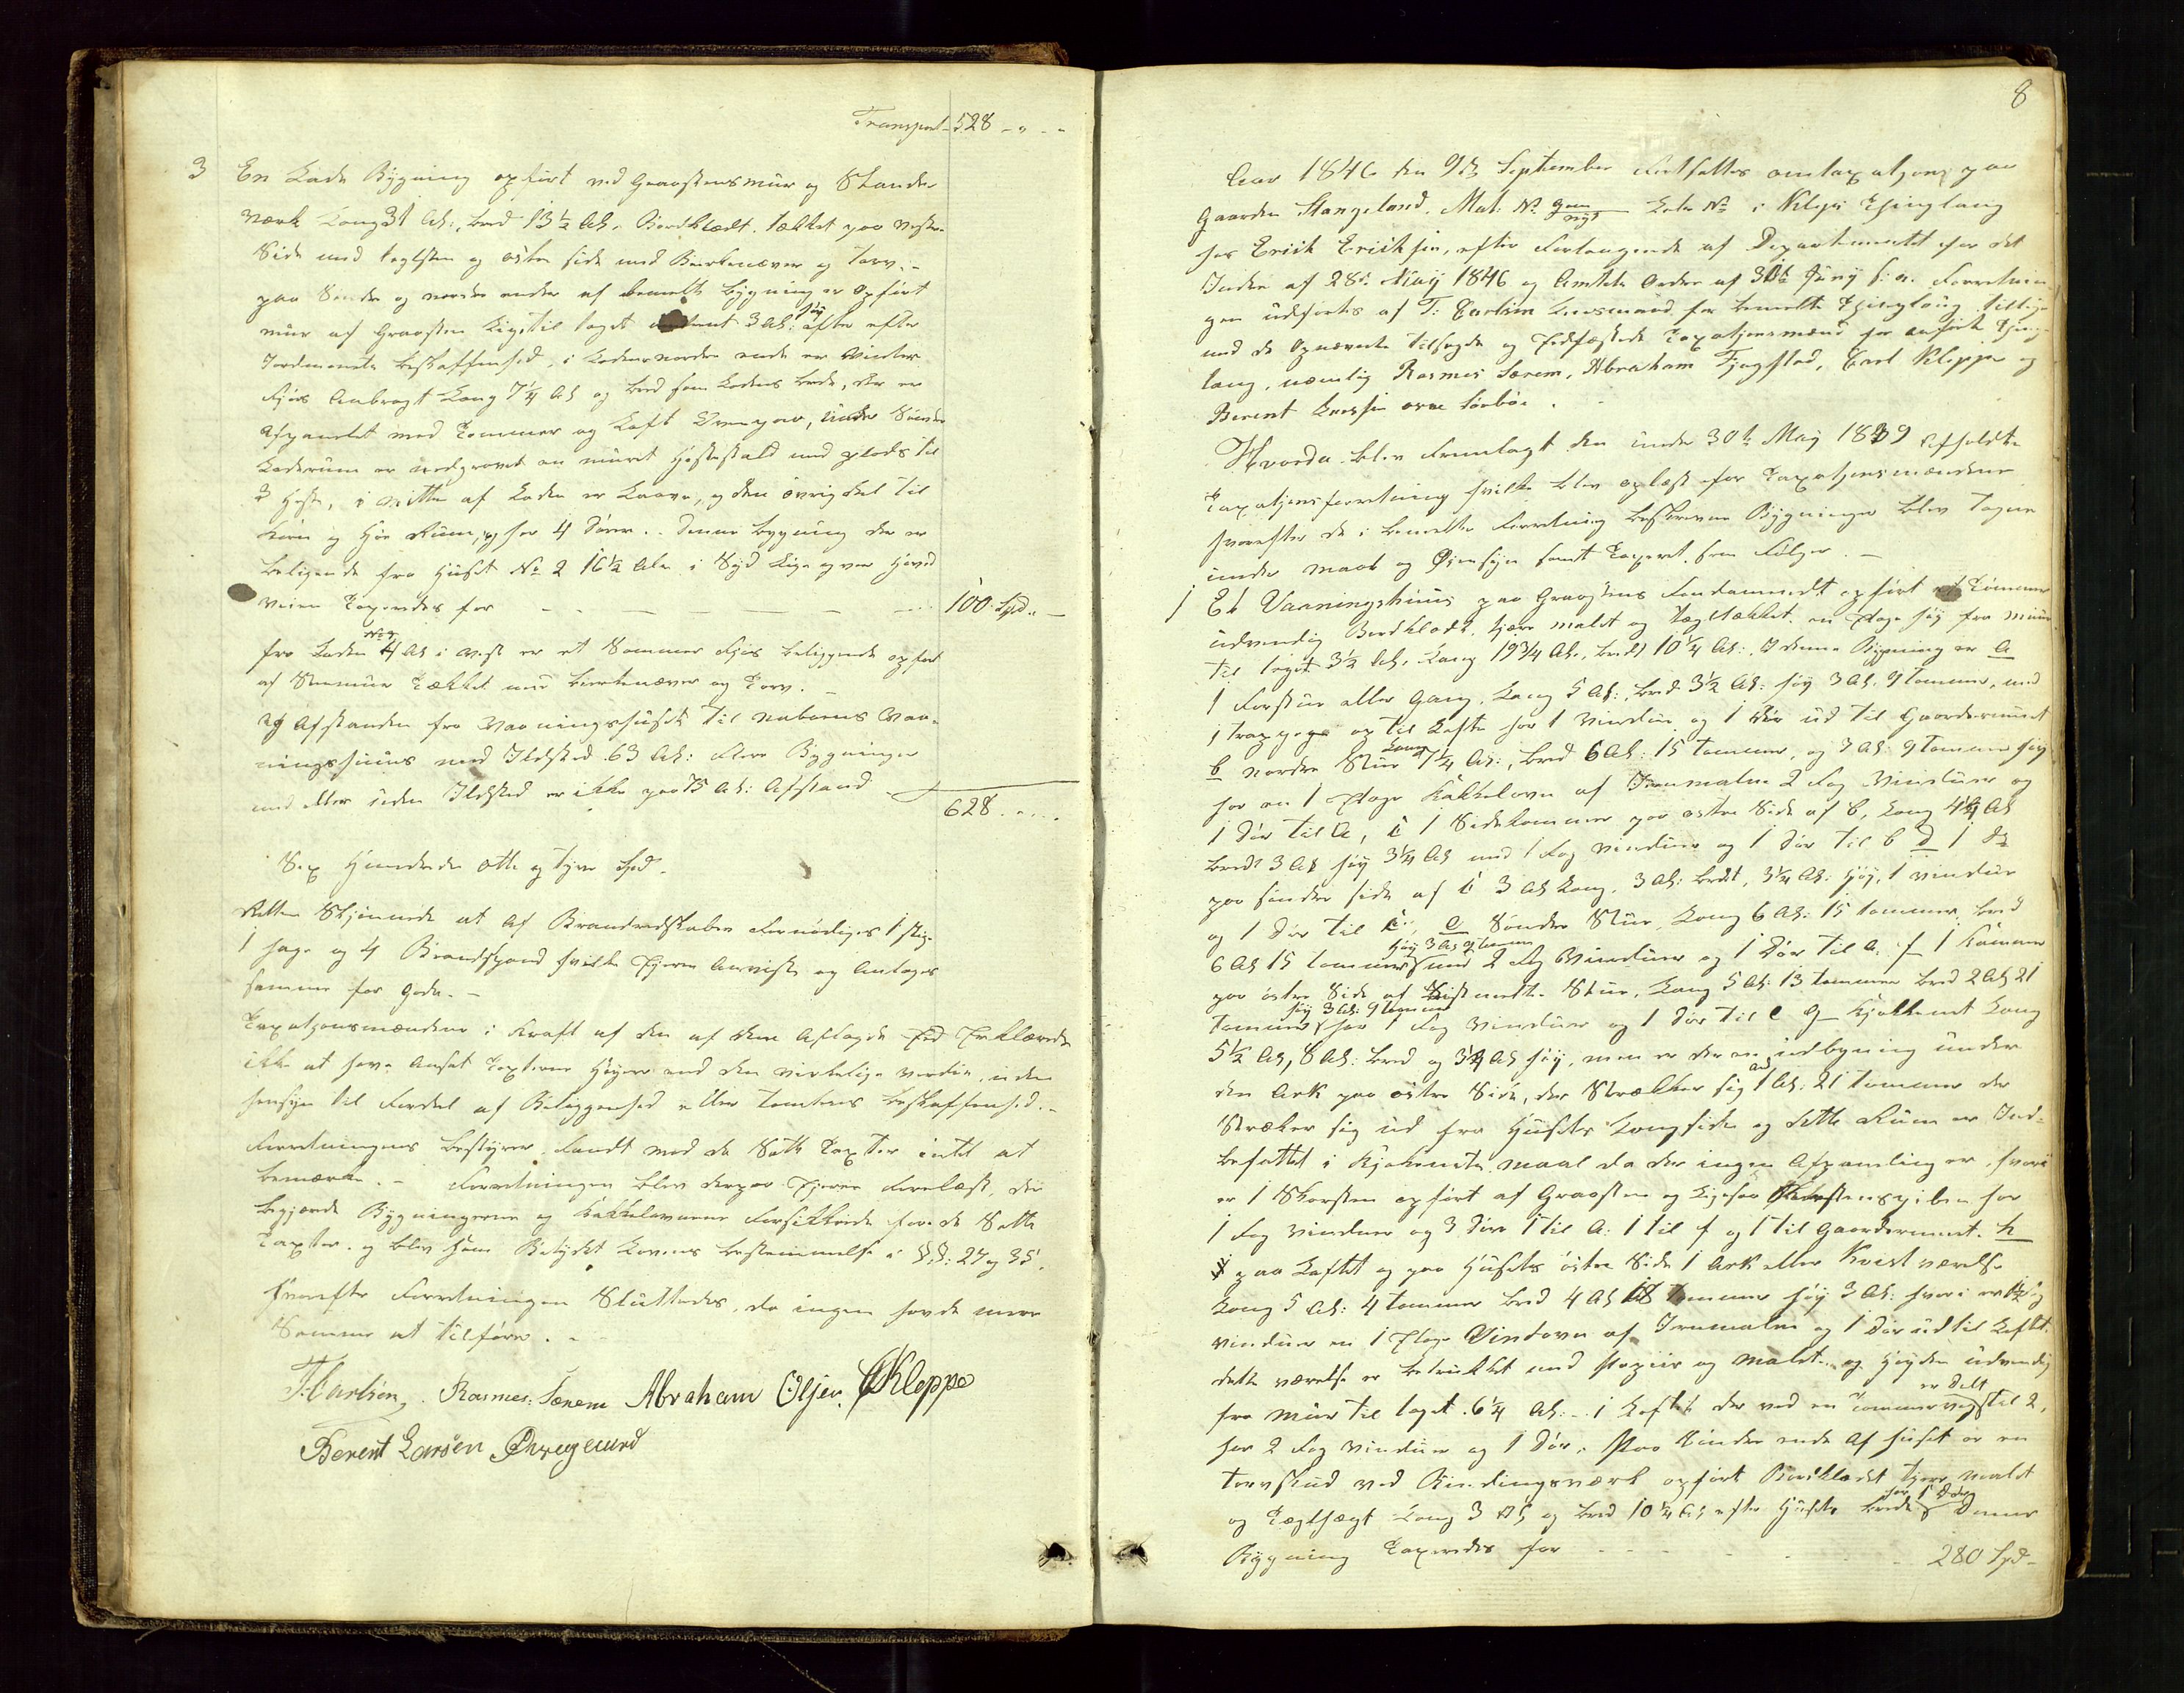 Transport 528 - " - "
3 En Lade Bygning opført ved Graastensmur og Stander
Værk Lang 31 Al:, bred 13½ Al. Bordklædt, tækket paa vestre
Side med Teglsten og østre side med Birkenæver og Torv. -
paa Søndre og nordre ender af bemelte Bygning er Opført
mur af Graasten Ligetil taget 3 Al: høy efter
Jordmonets Beskaffenhed, i Ladens nordre ende er Vinter
Fjøs Anbragt Lang 7¼ Al og bred som Ladens brede, der er
Afpanelet med Tømmer og Loft Ovenpaa, under Søndre
Laderum er nedgravet en muret Hestestald med plads til
2 Heste, i Mitten af Laden er Laave, og den øvrig deel til
Korn og Høe Rum, og har 4 Dører. Denne bygning der er
beligende fra Huset No 2 16½ Alen i Syd Lige over Hoved
veien Taxeredes for - - - 100 Spd. -
fra Laden No 3 4 Al i Vest er et Sommer Fjøs beliggende opført
af Steenmur Tækket med birkenæver og Torv. -
Afstanden fra Vaaningshuset til naboens Vaa-
ningshuus med Ildsted 63 Al: flere Bygninger
med eller uden Ildsted er ikke paa 75 Al: Afstand
628 . " . .
Sex Hundrede otte og tyve Spd.
Retten Skjønnede at af Brandredskaber Fornødiges 1 stige
1 Hage og 4 Brandspand hvilke Ejeren Anviste og Antoges
samme for Gode. -
Taxationsmændene i Kraft af den af dem Aflagde Eed Erklærede
ikke at have Ansat Taxterne Høyere end den virkelige værdie, uden
hensyn til Fordeel af Beliggenhed eller Tomtens Beskaffenhed. -
Forretningens bestyrer fandt mod de Satte Taxter intet at
bemærke. - Forretningen blev derpaa Ejeren Forelæst, der
begjærede Bygningerne og Kakkelovnene Forsikkrede for de Satte
Taxter. og blev ham Betydet Lovens bestemmelse i §§: 27 og 35.
hvorefter Forretningen Sluttedes, da ingen havde mere
Samme at tilføre. -
T. Carlsen, Rasmus Særem Abraham Olsen CKleppe
Berent Larsen
8
Aar 1846 den 9de September Fretsattes omtaxations paa
Gaarden Stangeland, Mat: No gam/nye Løbe No i Kleps Thinglaug
hos Eriik Eriiksen, efter Forlangende af Departementet for det
Indre af 28de May 1846 og Amtets Ordre af 30te Juny s: a. Forretnin
gen udførtes af T: Carlsen Lensmand for bemelte Thinglaug tillige
med de Opnævnte tilsagde og Edfæstede Taxationsmænd for anførte Thing-
laug, nemlig Rasmus Særem, Abraham Fjogstad, Carl Kleppe og
Berent Larsen øvre Sørbøe.
Hvorda blev Fremlagt den under 30te May 1839 Afholdte
Taxationsforretning hvilke blev oplæst for Taxationsmændene
hvorefter de i bemelte Forretning beskrevne Bygninger blev tagne
under Maal og Øiensyn samt Taxeret, som Følger. -
1 Et Vaaningshuus paa Graastens Fondamendt opført af Tømmer
udvendig Bordklædt, tjære malet og Tægltækket en Etage høy fra Muur
til taget 3½ Al, Lang 19¾ Al., bredt 10¼ Al: I denne Bygning er a
1 Forstue eller Gang, Lang 5 Al:, bred 3½ Al: høy 3 Al. 9 Tommer, med
1 trappe op til Lofte har 1 Vindue og 1 Dør ud til Gaardsrummet
b nordre Stue Lang 7¼ Al:, bred 6 Al: 15 Tommer, og 3 Al: 9 Tommer høy
har en 1 Etage Kakkelovn af Jernmalm 2 Fag Vinduer og
1 Dør til a, c 1 Sidekammer paa østre Side af b, Lang 4¼ Al
bredt 3 Al høy 3¼ Al med 1 Fag Vinduer og 1 Dør til b d 1 do
paa søndre side af c 3 Al Lang, 3 Al: bredt, 3¼ Al: høy, 1 Vindue
og 1 Dør til c. e Søndre Stue, Lang 6 Al: 15 tommer bred
6 Al 15 tommer høy 3 Al 9 tommer med 2 Fag Vinduer og 1 Dør til a. f 1 Kammer
paa østre Side af Sistmelte Stue, Lang 5 Al: 13 tommer bred 2 Al 21
tommer høy 3 Al: 9 tommer har 1 Fag Vinduer og 1 Dør til e g Kjøkkenet Lang
5½ Al, 8 Al: bred og 3¼ Al høy, men er der en indbygning under
den Ark paa østre Side, der Strækker sig 1 Al: 21 tommer der
Stræker sig ud fra Husets Langside og dette Rum er Ind-
befattet i Kjøkenets maal da der ingen Afpanling er, hvori
er 1 Skorsten opført af Graasten og Ligesaa Skorstenspiben har
1 Fag Vinduer og 3 Døre 1 til a. 1 til f og 1 til Gaardsrummet. h
paa Loftet og paa Husets østre Side 1 Ark eller Kvist værelse
Lang 5 Al: 4 tommer bred 4 Al 18 Tommer høy 3 Al: hvori er 1½ Fag
vinduer en 1 Etage Vindovn af Jernmalm og 1 Dør ud til Loftet.
dette værelse er betrækket med Papiir og malet. og Høyden udvendig
fra Muur til taget 6¼ Al: - i Loftet der ved en Tømmervæg er delt til 2,
har 2 Fag Vinduer og 1 Dør. Paa Søndre ende af huset er en
Torvskud ved Bindingsværk opført Bordklædet tjære malet
og Tægltægt Lang 3 Al, og bred 10¼ Al efter Husets brede har 1 Dør Denne
Bygning Taxeredes for - - - 280 Spd -